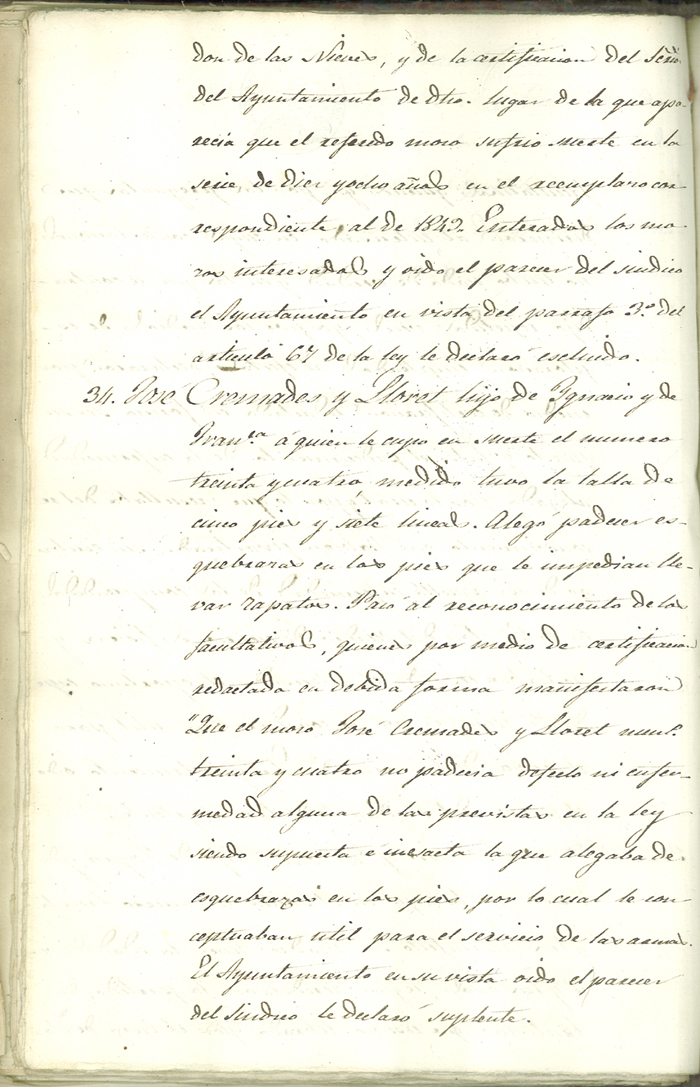 don de las Nieves, y de la certificacion del Srio.
del Ayuntamiento de dho. lugar de la que apa-
recia que el referido moso sufrio suerte en la
serie de diez y ocho años en el reemplazo cor-
respondiente al de 1842. Enterados los mo-
zos interesados y oido el parecer del sindico
el Ayuntamiento en vista del parrafo 3.º del
articulo 67 de la ley le declaró escluido.
34. José Cremades y Lloret hijo de Ignacio y de
Fran.ca á quien le cupo en suerte el numero
treinta y cuatro, medido tuvo la talla de
cinco pies y siete lineas. Alegó padecer es-
quebrazas en los pies que le impedian lle-
var zapatos. Pasó al reconocimiento de los
facultativos, quienes por medio de certificacion
redactada en debida forma manifestaron
"Que el moso José Cremades y Lloret num.
treinta y cuatro no padecia defecto ni enfer-
medad alguna de las previstas en la ley
siendo supuesta é inesacta la que alegaba de
esquebrazas en los pies, por lo cual le con-
ceptuaban util para el servicio de las armas.
El Ayuntamiento en su vista oido el parecer
del Sindico le declaró suplente.